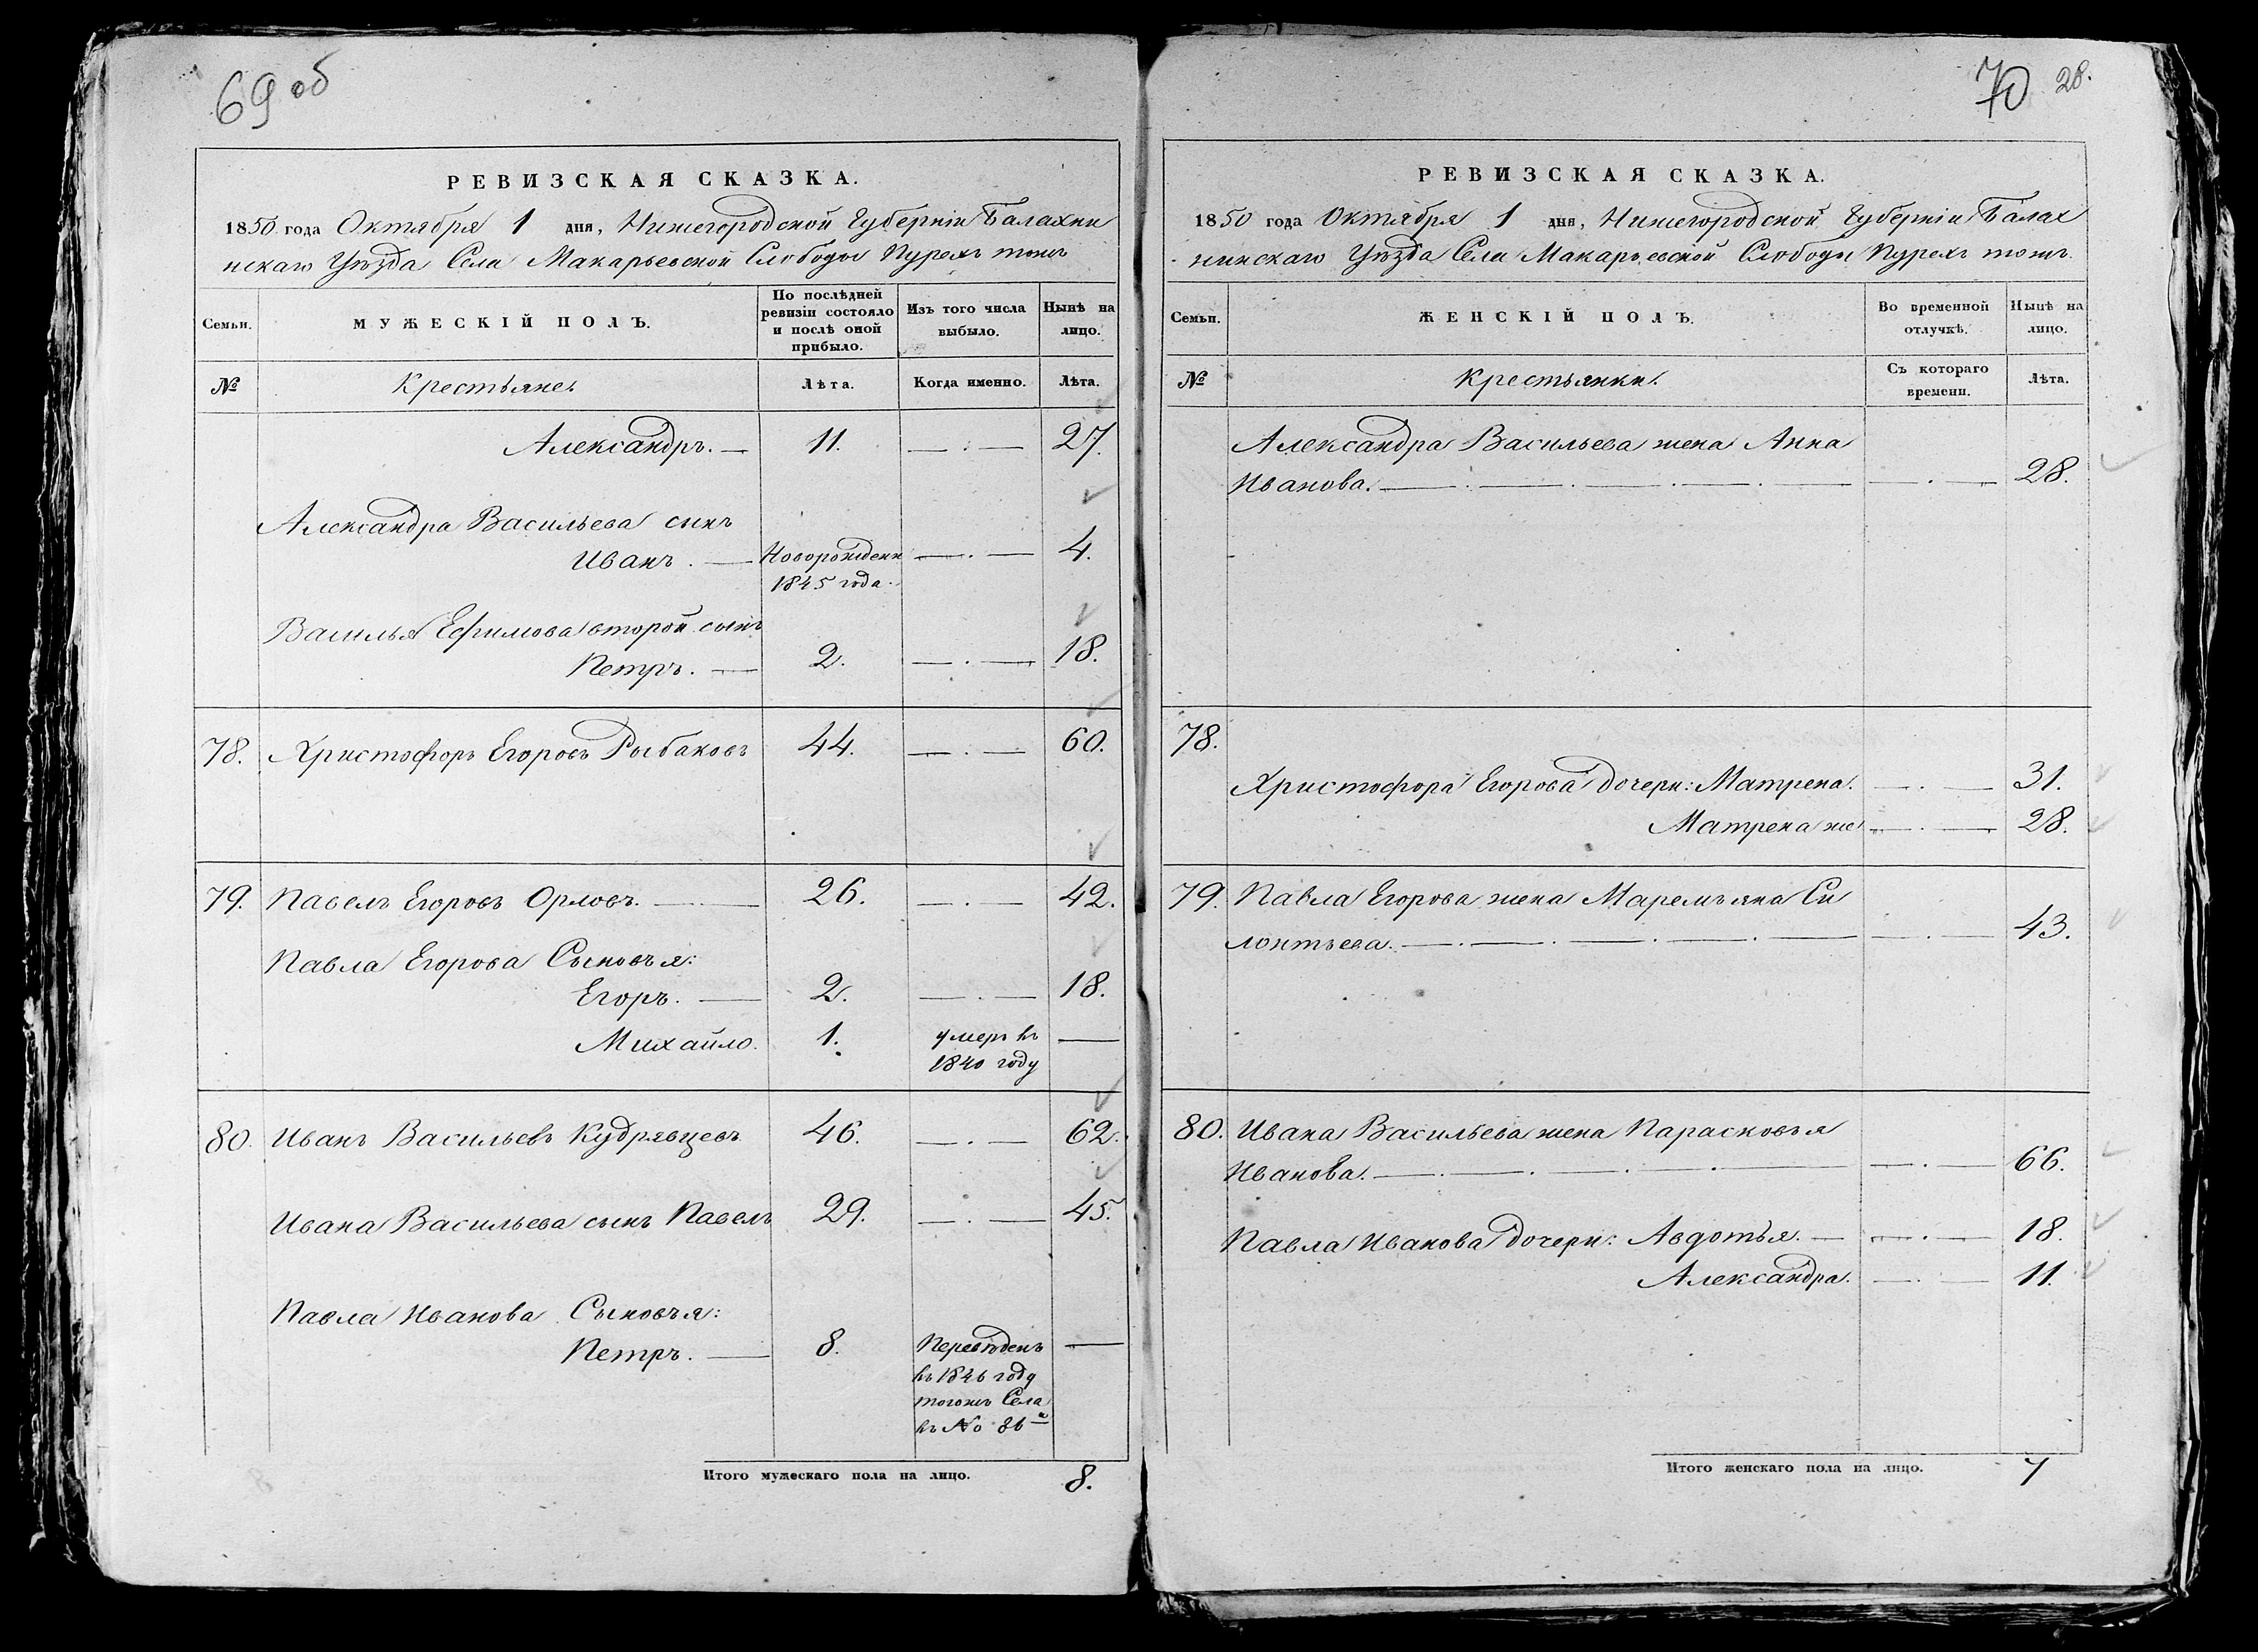 69 об
РЕВИЗСКАЯ СКАЗКА.
1850 года Октября 1 дня, Нижегородской Губерніи Балахни
нскаго Уѣзда Села Макарьевской Слободы Пурехъ тожъ
Семьи.
МУЖЕСКІЙ ПОЛЪ.
По послѣдней ревизіи состояло и послѣ оной прибыло.
Изъ того числа выбыло.
Нынѣ на лицо.
№
Крестьяне.
Лѣта.
Когда именно.
Лѣта.
Александръ. — 11. — . — 27.
Александра Васильева сынъ
Иванъ. — Новорожден — . — 4.
1845 года.
Василья Ефимова второй сынъ
Петръ. — 2. — . — 18.
78. Христофоръ Егоровъ Рыбаковъ 44. — . — 60.
79. Павелъ Егоровъ Орловъ. — 26. — . — 42.
Павла Егорова Сыновья:
Егоръ. — 2. — . — 18.
Михайло. 1. умеръ въ —
1840 году
80. Иванъ Васильевъ Кудрявцевъ 46. — . — 62.
Ивана Васильева сынъ Павелъ 29. — . — 45.
Павла Иванова Сыновья:
Петръ. — 8. Переведенъ —
въ 1846 году
тогожъ Села
въ No 86й
Итого мужескаго пола на лицо. 8.
70 28.
РЕВИЗСКАЯ СКАЗКА.
1850 года Октября 1 дня, Нижегородской Губерніи Балах
нинскаго Уѣзда Села Макарьевской Слободы Пурехъ тожъ.
Семьи.
ЖЕНСКІЙ ПОЛЪ.
Во временной отлучкѣ.
Нынѣ на лицо.
№
Крестьянки.
Съ котораго времени.
Лѣта.
Александра Васильева жена Анна
Иванова. — . — 28.
78.
Христофора Егорова дочери: Матрена. — . — 31.
Матрена же — . — 28.
79. Павла Егорова жена Маремьяна Си
лонтьева. — . — 43.
80. Ивана Васильева жена Парасковья
Иванова. — . — 66.
Павла Иванова дочери: Авдотья. — . — 18.
Александра. — . — 11.
Итого женскаго пола на лицо. 7